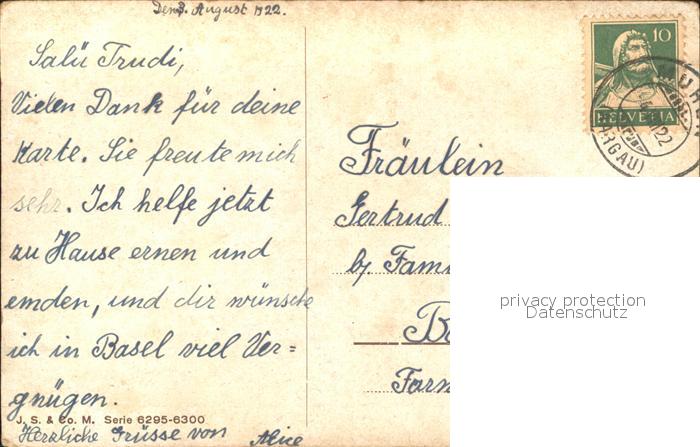 Den 3. August 1922.
Salü Trudi,
Vielen Dank für deine
Karte. Sie freute mich
sehr. Ich helfe jetzt
zu Hause ernen und
emden, und dir wünsche
ich in Basel viel Ver=
gnügen.
J. S. & Co. M. Serie 6295-6300
Herzliche Grüsse von Alice
10
HELVETIA
ARGAU)
22
Fräulein
Gertrud
b/. Fami
B
Farn
privacy protection
Datenschutz